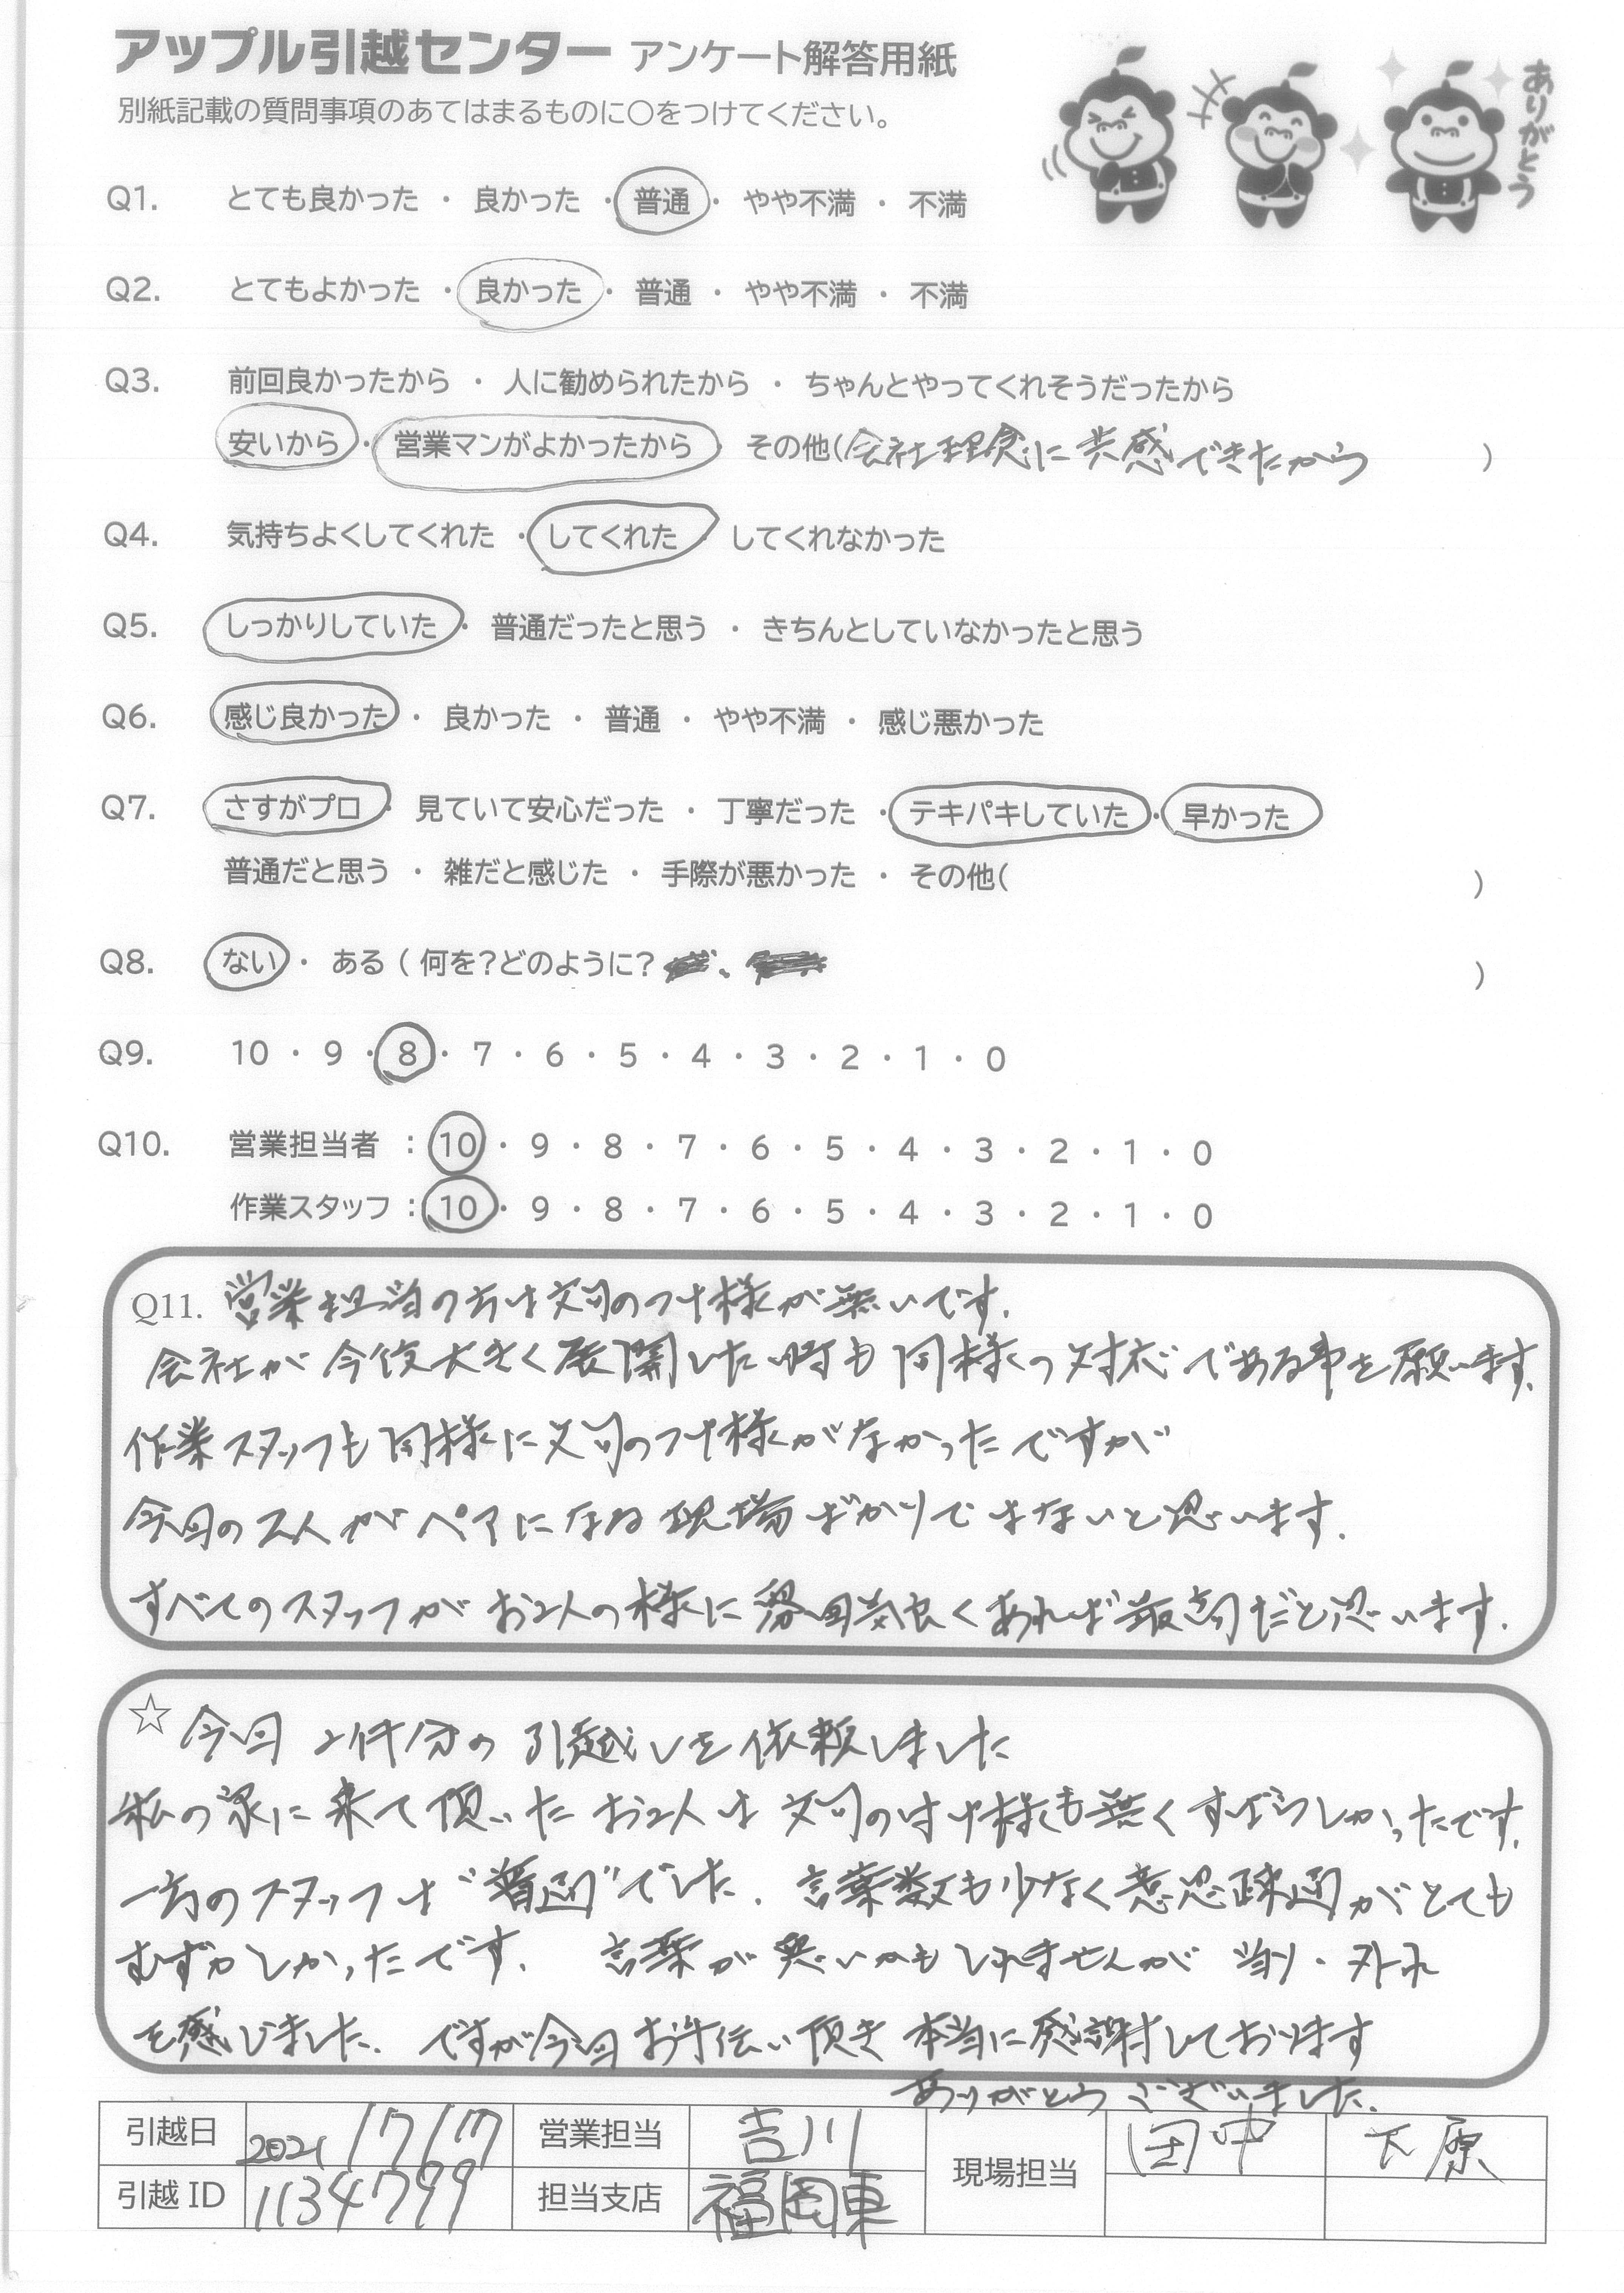 アップル引越センター アンケート解答用紙
別紙記載の質問事項のあてはまるものに○をつけてください。
ありがとう
Q1. とても良かった ・ 良かった ・ 普通 ・ やや不満 ・ 不満
Q2. とてもよかった ・ 良かった ・ 普通 ・ やや不満 ・ 不満
Q3. 前回良かったから ・ 人に勧められたから ・ ちゃんとやってくれそうだったから
安いから ・ 営業マンがよかったから ・ その他(会社理念に共感できたから )
Q4. 気持ちよくしてくれた ・ してくれた ・ してくれなかった
Q5. しっかりしていた ・ 普通だったと思う ・ きちんとしていなかったと思う
Q6. 感じ良かった ・ 良かった ・ 普通 ・ やや不満 ・ 感じ悪かった
Q7. さすがプロ ・ 見ていて安心だった ・ 丁寧だった ・ テキパキしていた ・ 早かった
普通だと思う ・ 雑だと感じた ・ 手際が悪かった ・ その他( )
Q8. ない ・ ある ( 何を?どのように? )
Q9. 10 ・ 9 ・ 8 ・ 7 ・ 6 ・ 5 ・ 4 ・ 3 ・ 2 ・ 1 ・ 0
Q10. 営業担当者 : 10 ・ 9 ・ 8 ・ 7 ・ 6 ・ 5 ・ 4 ・ 3 ・ 2 ・ 1 ・ 0
作業スタッフ : 10 ・ 9 ・ 8 ・ 7 ・ 6 ・ 5 ・ 4 ・ 3 ・ 2 ・ 1 ・ 0
Q11. 営業担当の方は文句のつけ様が無いです.
会社が今後大きく展開した時も同様の対応である事を願います.
作業スタッフも同様に文句のつけ様がなかったですが
今回の2人がペアになる現場ばかりではないと思います.
すべてのスタッフがお2人の様に雰囲気良くあれば最高だと思います.
☆ 今回 2件分の引越しを依頼しました
私の家に来て頂いたお2人は文句のつけ様も無くすばらしかったです.
一方のスタッフは"普通"でした. 言葉数も少なく意思疎通がとても
むずかしかったです. 言葉が悪いかもしれませんが 当り・外れ
を感じました. ですが今回お手伝い頂き 本当に感謝しております
ありがとうございました.
引越日 2021 1/17 営業担当 吉川 現場担当 田中 下原
引越 ID 1134799 担当支店 福岡東